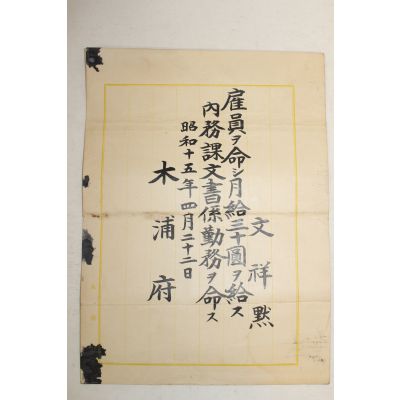 文祥黙
雇員ヲ命シ月給三十圓ヲ給ス
內務課文書係勤務ヲ命ス
昭和十五年四月二十二日
木浦府